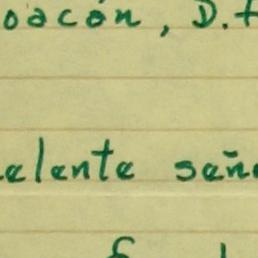 oacán, D.F
elente seño